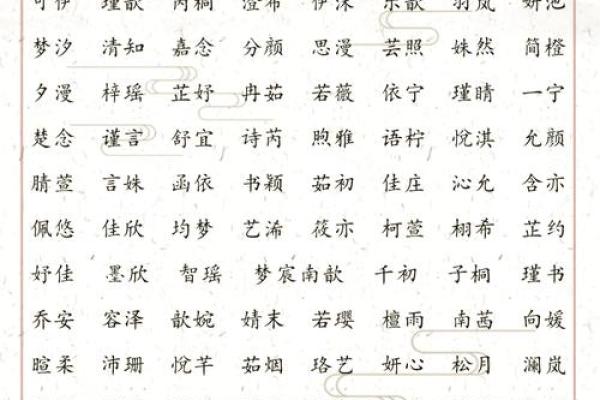 可伊 瑾歆 芮桐 澄希 伊沫 乐歆 羽岚 妍池
梦汐 清知 嘉念 分颜 思漫 芸照 姝然 简橙
夕漫 梓瑶 芷妤 冉茹 若薇 依宁 瑾晴 一宁
楚念 谨言 舒宜 诗芮 煦雅 语柠 悦淇 允颜
腈萱 言姝 函依 书颖 茹初 佳庄 沁允 含亦
佩悠 佳欣 均梦 艺浠 筱亦 柯萱 栩希 芷约
妤佳 墨欣 智瑶 梦宸南歆 千初 子桐 瑾书
乔安 容泽 歆婉 婧末 若璎 檀雨 南茜 向媛
暄柔 沛珊 悅芊 茹烟 珞艺 妍心 松月 澜岚